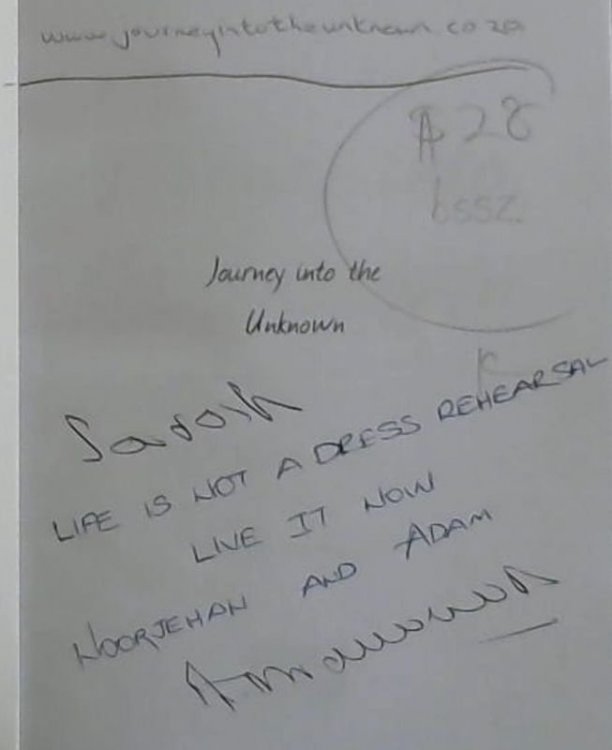 www.journeyintotheunknown.co.za
A28
Journey into the
Unknown
Sarah
LIFE IS NOT A DRESS REHEARSAL
LIVE IT NOW
NOORJEHAN AND ADAM